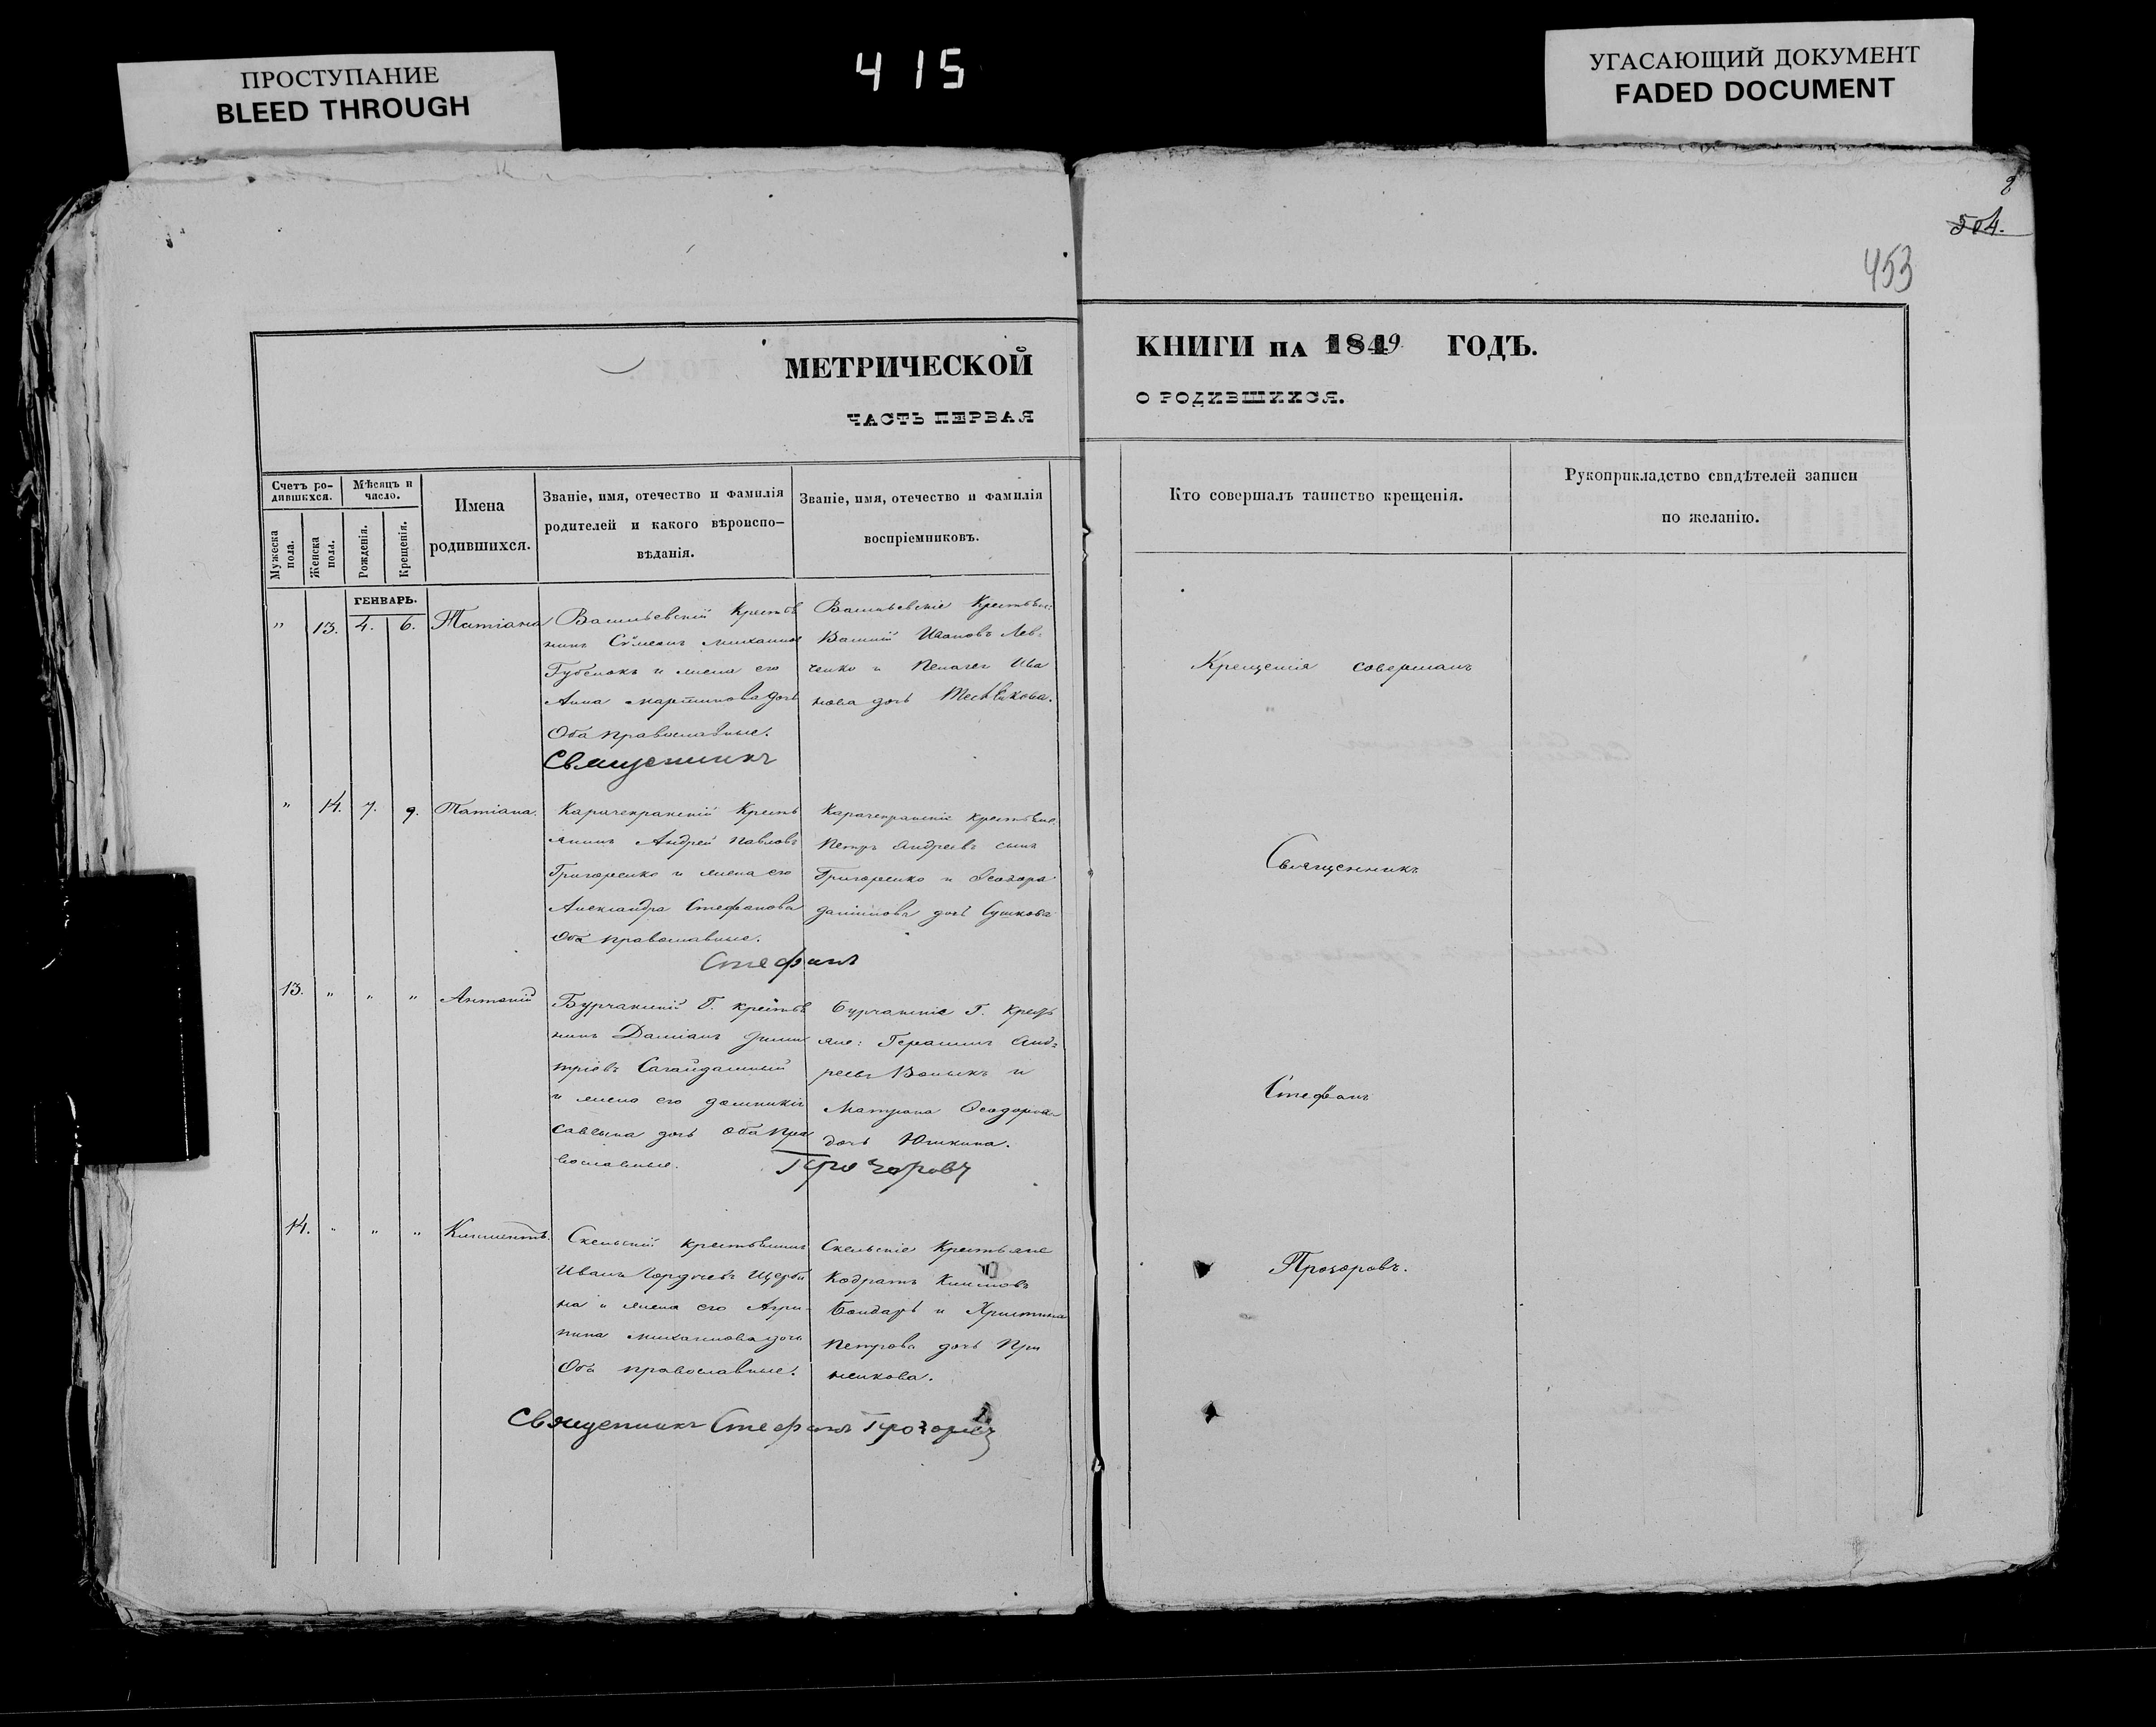 ПРОСТУПАНИЕ
BLEED THROUGH
415
УГАСАЮЩИЙ ДОКУМЕНТ
FADED DOCUMENT
504.
453
МЕТРИЧЕСКОЙ
ЧАСТЬ ПЕРВАЯ
КНИГИ НА 1849 ГОДЪ.
О РОДИВШИХСЯ.
Счетъ ро-
дившихся.
Мужеска пола.
Женска пола.
Мѣсяцъ и
число.
Рожденія.
Крещенія.
Имена
родившихся.
Званіе, имя, отечество и фамилія
родителей и какого вѣроиспо-
вѣданія.
Званіе, имя, отечество и фамилія
воспріемниковъ.
Кто совершалъ таинство крещенія.
Рукоприкладство свидѣтелей записи
по желанію.
ГЕНВАРЬ.
" 13. 4. 6. Татіана
Васильевскій Крестья
нинъ Сѵмеонъ Михаиловъ
Губенокъ и жена его
Анна Мартинова дочь
Оба православные.
Священникъ
Васильевскіе Крестьяне:
Василій Ивановъ Лев-
ченко и Пелагея Ива
нова дочь
" 14. 7. 9. Татіана.
Карачекракскій Кресть
янинъ Андрей Павловъ
Григоренко и жена его
Александра Стефанова
Оба православные.
Стефанъ
Карачекракскіе крестьяне
Петръ Андреевъ сынъ
Григоренко и Ѳеодора
Даніилова дочь Сушкова
13. " " " Антоній
Бурчакскій Г. крестья
нинъ Даміанъ Дими
тріевъ Сагайдашный
и жена его Домникія
Саввына дочь оба пра
вославные.
Прозоровъ
Бурчакскіе Г. Кресть
яне: Герасимъ Анд-
реевъ Волыкъ и
Матрона Ѳеодорова
дочь Юшкина.
14. " " " Климентъ.
Скельскій крестьянинъ
Иванъ Гордѣевъ Щерби
на и жена его Агри-
пина Михаилова дочь
Оба православные.
Скельскіе Крестьяне
Кодратъ Климовъ
Бондарь и Христина
Петрова дочь При
женкова.
Священникъ Стефанъ Прозоровъ
Крещенія совершалъ
Священникъ
Стефанъ
Прозоровъ.